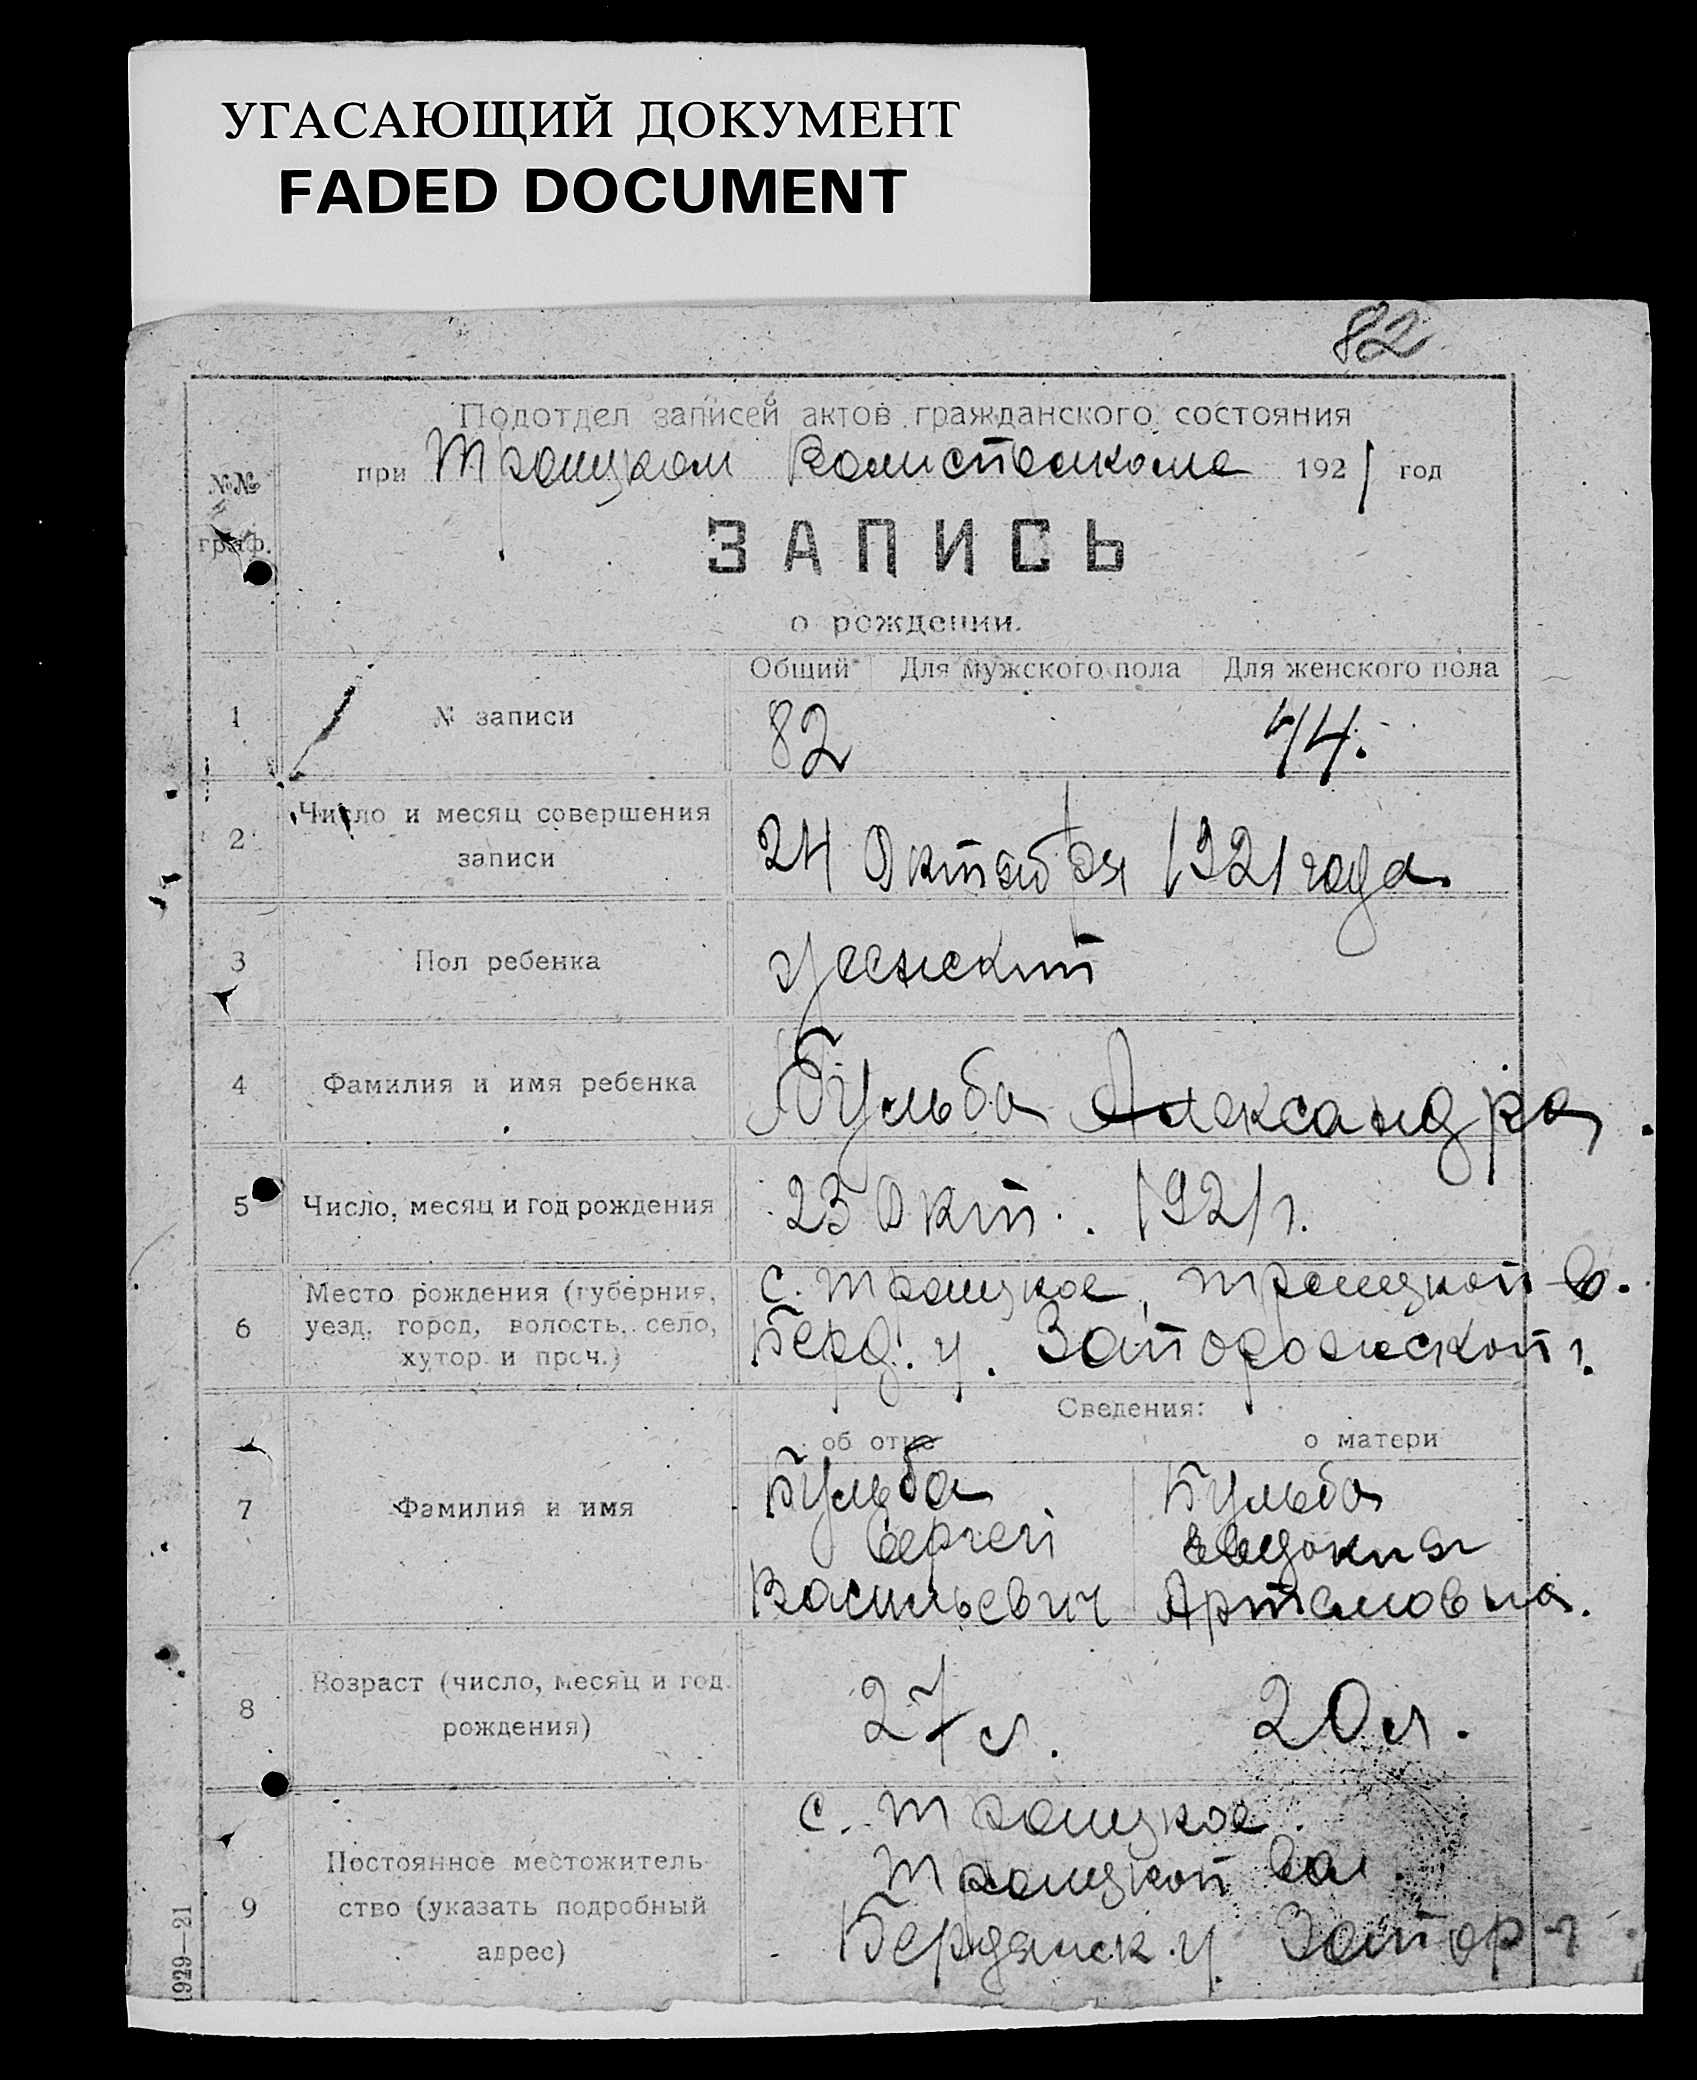 УГАСАЮЩИЙ ДОКУМЕНТ
FADED DOCUMENT
82
Подотдел записей актов гражданского состояния
№№ граф.
при Троицком Волисполкоме 1921 год
ЗАПИСЬ
о рождении.
Общий Для мужского пола Для женского пола
1 № записи 82 44.
2 Число и месяц совершения
записи
24 Октября 1921 года.
3 Пол ребенка женский
4 Фамилия и имя ребенка Бульба Александра.
5 Число, месяц и год рождения 23 Окт. 1921 г.
6 Место рождения (губерния,
уезд, город, волость, село,
хутор и проч.)
с. Троицкое, Троицкой в.
Берд. у. Запорожской г.
Сведения:
об отце о матери
7 Фамилия и имя
Бульба Бульба
Сергей Евдокия
Васильевич Артемовна.
8 Возраст (число, месяц и год
рождения)
27 л. 20 л.
9 Постоянное местожитель-
ство (указать подробный
адрес)
с. Троицкое.
Троицкой вол.
Бердянск. у. Запор. г.
1929—21